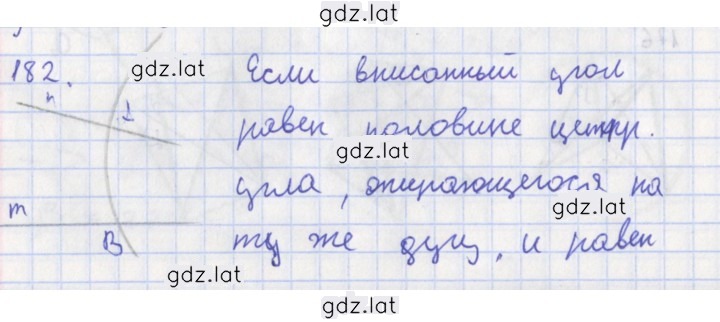 gdz.lat
182. gdz.lat Если вписанный угол
n 1
равен половине центр.
gdz.lat
угла, опирающегося на
m gdz.lat
B ту же дугу, и равен
gdz.lat
gdz.lat